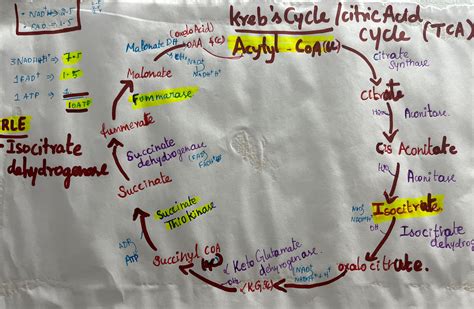 NADH → 2.5
FAD → 1.5
Kreb's Cycle / citric Acid
cycle (TCA)
3 NADH+H+ → 7.5
1 FAD+ → 1.5
1 ATP → 1
10 ATP
RLE
- Isocitrate
dehydrogenase
(oxalo Acid)
OAA 4(c)
Acytyl - CoA(2c)
Malonate DH
NAD+
NADH+H+
citrate
Synthase
Citrate
Aconitase.
Cis Aconitate
Aconitase
Isocitrate
Isocitrate
dehydrog
oxalocitrate.
NAD+
NADH+H+
α Keto Glutamate
dehydrogenase.
α K.G(5c)
Succinyl COA
ADP
ATP
Succinate
Thiokinase
Succinate
Succinate
dehydrogenase
(FAD)
FADH2
fummerate
Fommarase
Malonate